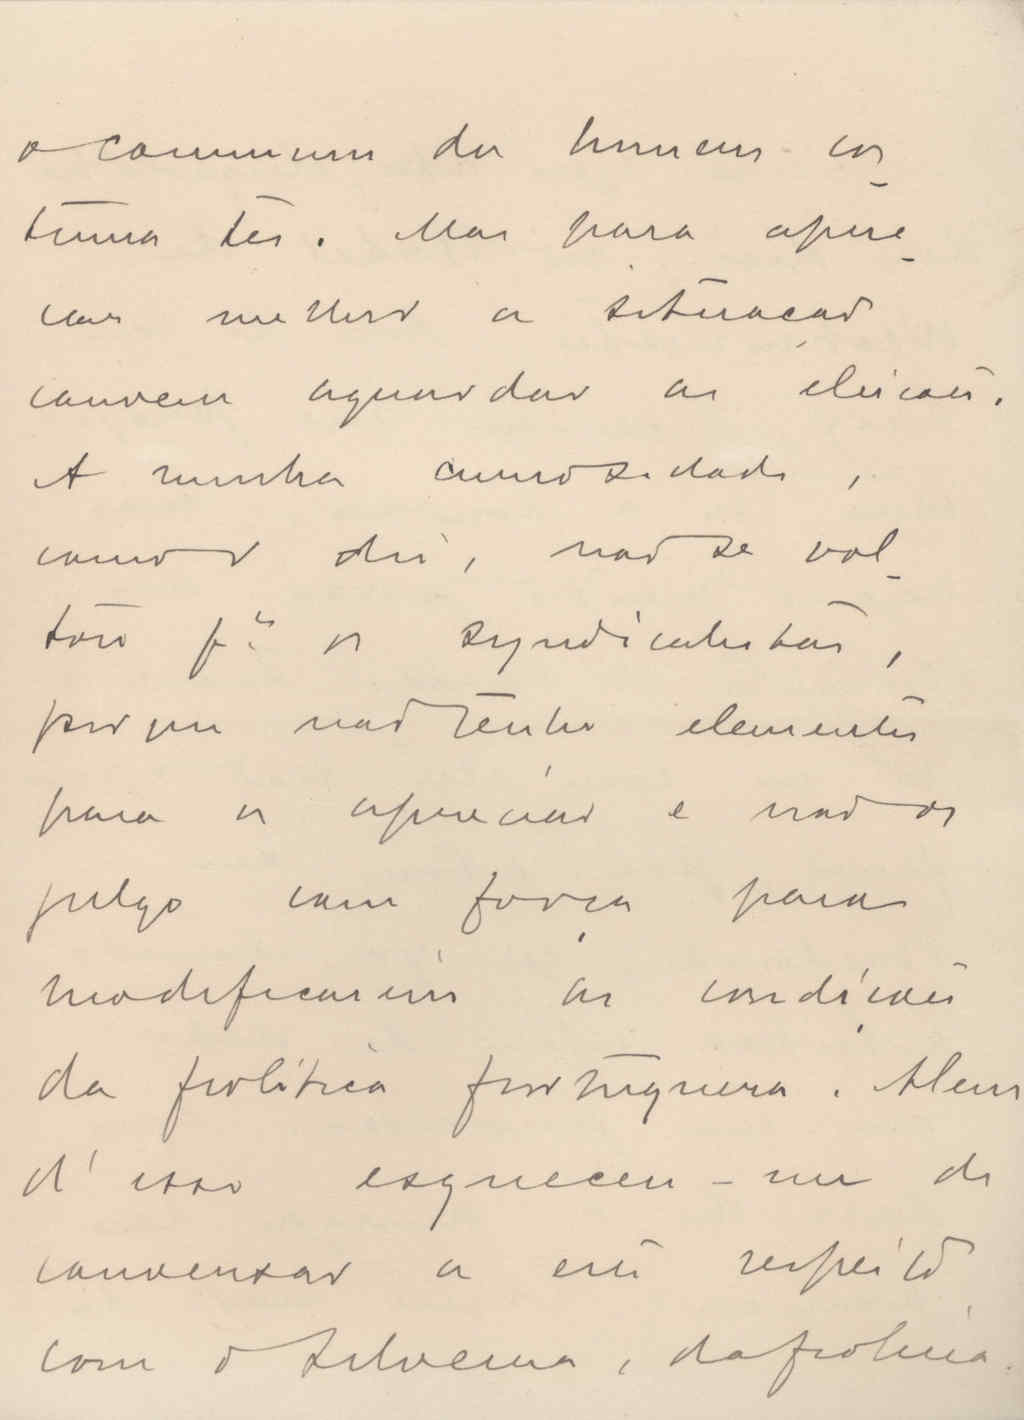 o commum dos homens cos
tuma ter. Mas para apre
ciar melhor a situação
convem aguardar as eleições.
A minha curiosidade,
como diz, não se vol
tou p.ª os syndicalistas,
porque não tenho elementos
para os apreciar e não os
julgo com força para
modificarem as condições
da politica portugueza. Alem
d'isso esqueceu-me de
conversar a esse respeito
com o Silveira, da policia.